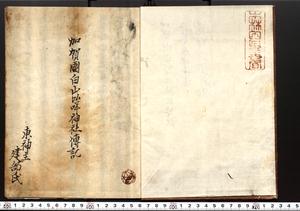 加賀國白山比咩神社傳記
東神主
建部氏